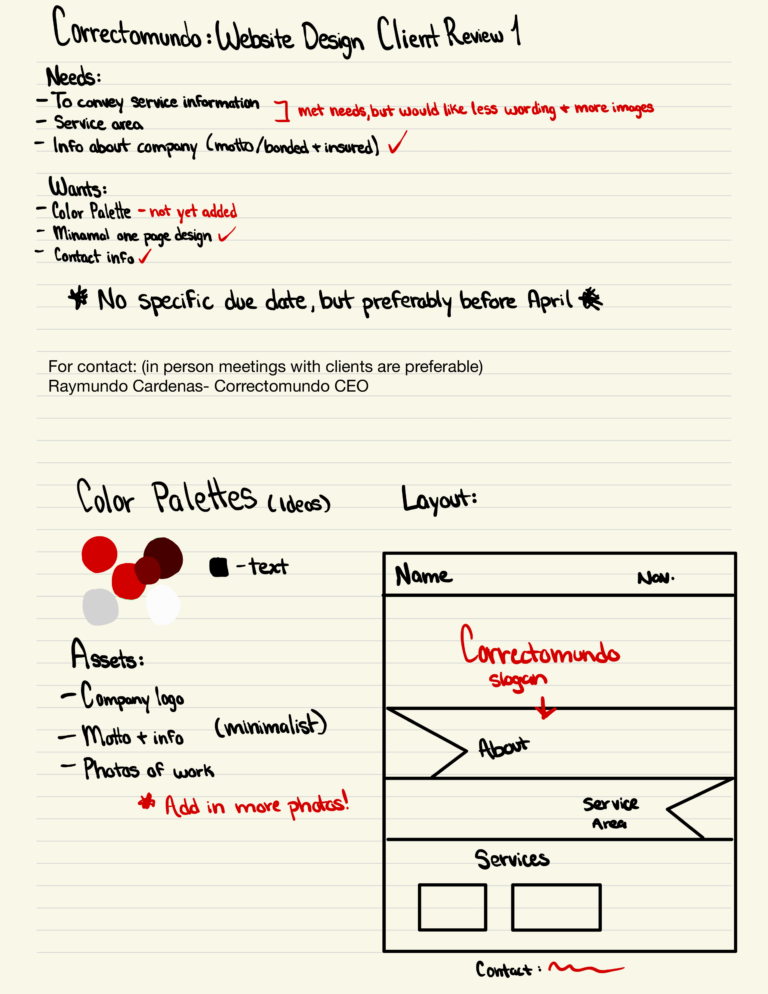 Correctomundo: Website Design Client Review 1
Needs:
- To convey service information
- Service area
met needs, but would like less wording + more images
- Info about company (motto/bonded + insured) ✓
Wants:
- Color Palette - not yet added
- Minamal one page design ✓
- Contact info ✓
* No specific due date, but preferably before April *
For contact: (in person meetings with clients are preferable)
Raymundo Cardenas- Correctomundo CEO
Color Palettes (Ideas)
- text
Assets:
- Company logo
- Motto + info
(minimalist)
- Photos of work
* Add in more photos!
Layout:
Name Nav.
Correctomundo
slogan
About
Service
Area
Services
Contact: